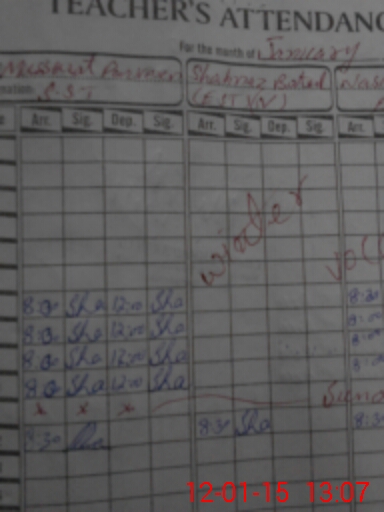 TEACHER'S ATTENDANC
For the month of January
Mussarat Parveen Shahnaz Batool
S.ST
Arr. Sig. Dep. Sig. Arr. Sig. Dep. Sig. Arr.
winter
8:00 Sha 12:00 Sha 8:30
8:00 Sha 12:00 Sha
8:00 Sha 12:00 Sha
8:00 Sha 12:00 Sha
x x x
8:30 Sha 8:30 Sha 8:3
12-01-15 13:07